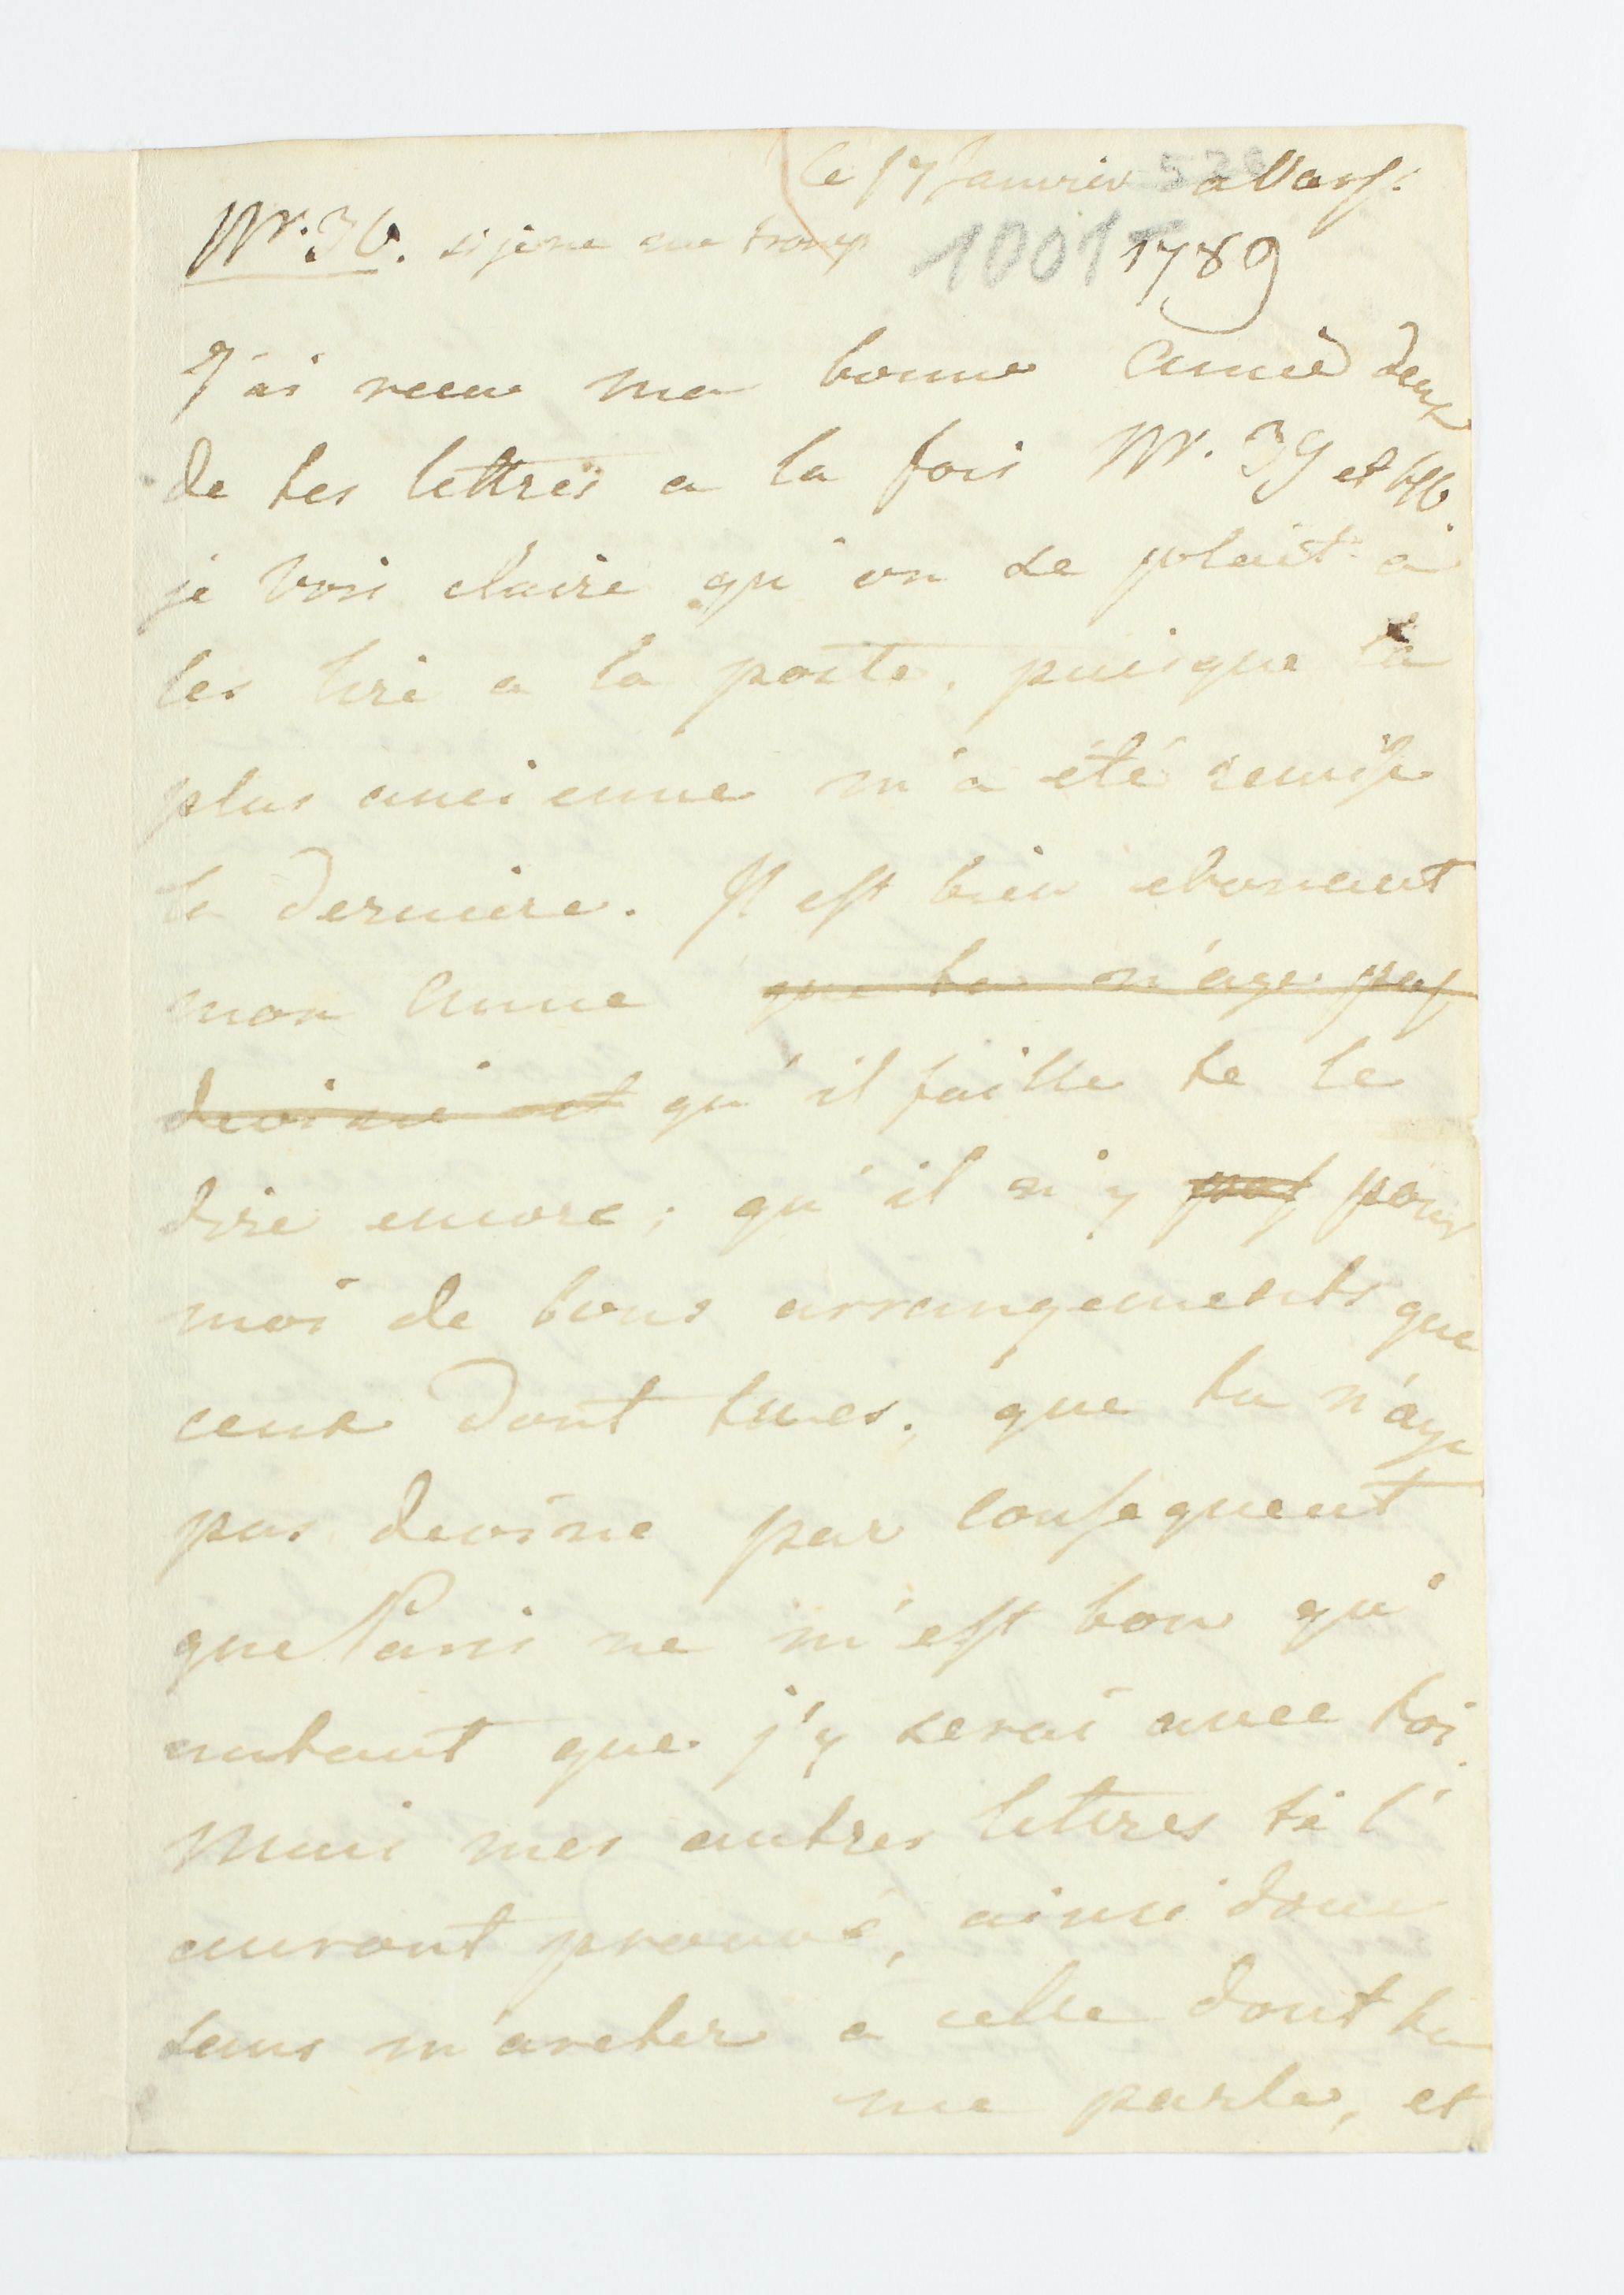 le 17 Janvier a Vars:
Nr. 36. si je ne me tromp 1001 1789
J'ai recu ma bonne Amie deux
de tes lettres a la fois Nr. 39 et
je vois claire qu'on se plait a
les lire a la poste, puisque la
plus ancienne m'a été remise
la derniere. Il est bien etonant
mon Amie que tu n'aye pas
deviné et qu'il faille te le
dire encore; qu'il n'y pas pour
moi de bons arrangements que
ceux dont tu es; que tu n'aye
pas devine par consequent
que Paris ne m'est bon qu'
autant que j'y serai avec toi.
Mais mes autres lettres te l'
auront prouvé, ainsi donc
sans m'areter a celle dont tu
me parle, et